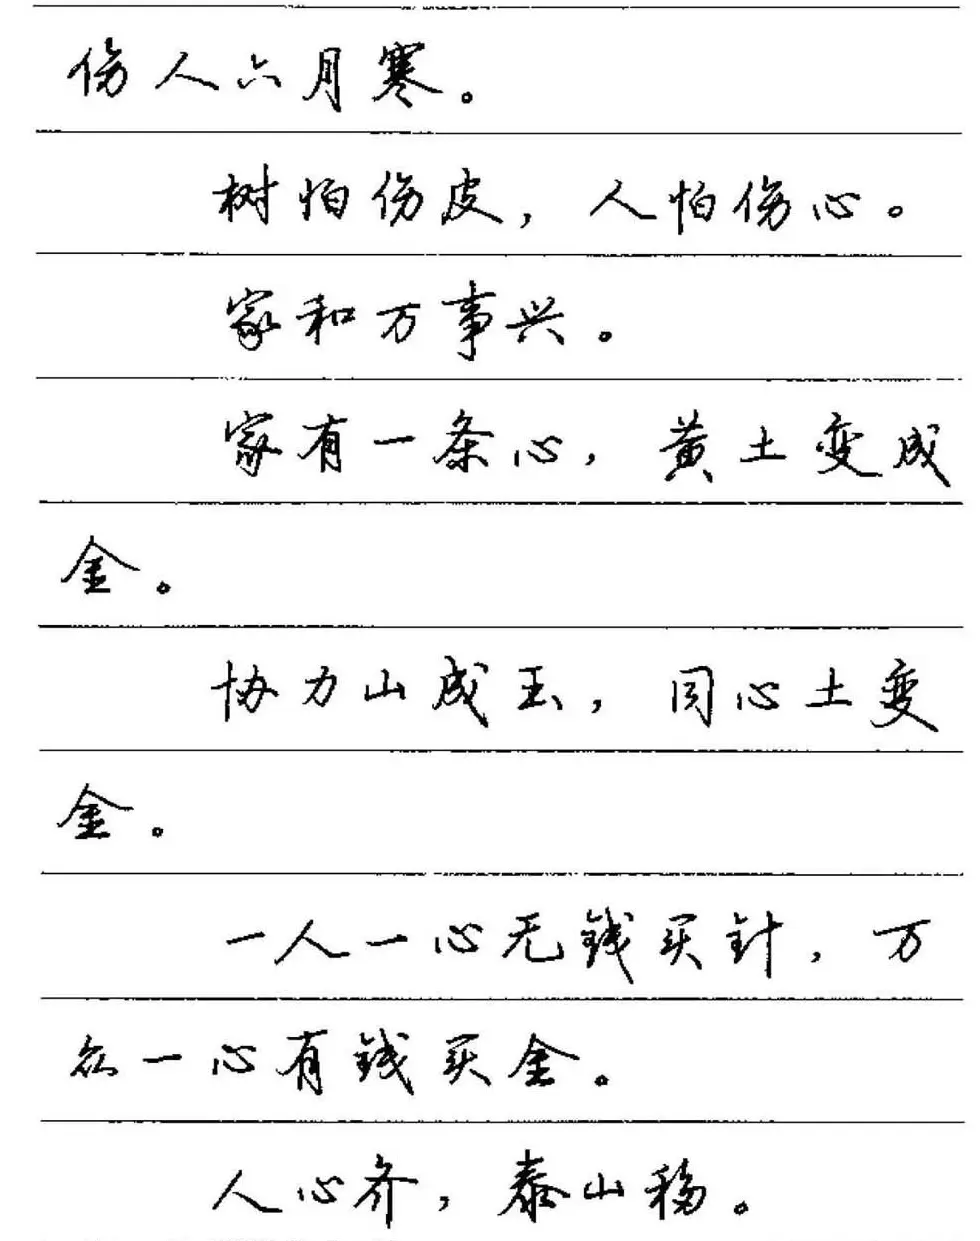 伤人六月寒。
树怕伤皮，人怕伤心。
家和万事兴。
家有一条心，黄土变成
金。
协力山成玉，同心土变
金。
一人一心无钱买针，万
众一心有钱买金。
人心齐，泰山移。